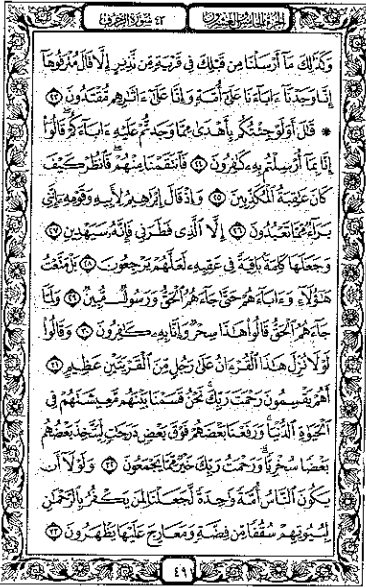 الجزء الخامس والعشرون
٤٣ سورة الزخرف
وَكَذَٰلِكَ مَآ أَرْسَلْنَا مِن قَبْلِكَ فِى قَرْيَةٍ مِّن نَّذِيرٍ إِلَّا قَالَ مُتْرَفُوهَآ
إِنَّا وَجَدْنَآ ءَابَآءَنَا عَلَىٰٓ أُمَّةٍ وَإِنَّا عَلَىٰٓ ءَاثَٰرِهِم مُّقْتَدُونَ ٢٣
* قَٰلَ أَوَلَوْ جِئْتُكُم بِأَهْدَىٰ مِمَّا وَجَدتُّمْ عَلَيْهِ ءَابَآءَكُمْ قَالُوٓا۟
إِنَّا بِمَآ أُرْسِلْتُم بِهِۦ كَٰفِرُونَ ٢٤ فَٱنتَقَمْنَا مِنْهُمْ فَٱنظُرْ كَيْفَ
كَانَ عَٰقِبَةُ ٱلْمُكَذِّبِينَ ٢٥ وَإِذْ قَالَ إِبْرَٰهِيمُ لِأَبِيهِ وَقَوْمِهِۦٓ إِنَّنِى
بَرَآءٌ مِّمَّا تَعْبُدُونَ ٢٦ إِلَّا ٱلَّذِى فَطَرَنِى فَإِنَّهُۥ سَيَهْدِينِ ٢٧
وَجَعَلَهَا كَلِمَةًۢ بَاقِيَةً فِى عَقِبِهِۦ لَعَلَّهُمْ يَرْجِعُونَ ٢٨ بَلْ مَتَّعْتُ
هَٰٓؤُلَآءِ وَءَابَآءَهُمْ حَتَّىٰ جَآءَهُمُ ٱلْحَقُّ وَرَسُولٌ مُّبِينٌ ٢٩ وَلَمَّا
جَآءَهُمُ ٱلْحَقُّ قَالُوا۟ هَٰذَا سِحْرٌ وَإِنَّا بِهِۦ كَٰفِرُونَ ٣٠ وَقَالُوا۟
لَوْلَا نُزِّلَ هَٰذَا ٱلْقُرْءَانُ عَلَىٰ رَجُلٍ مِّنَ ٱلْقَرْيَتَيْنِ عَظِيمٍ ٣١
أَهُمْ يَقْسِمُونَ رَحْمَتَ رَبِّكَ نَحْنُ قَسَمْنَا بَيْنَهُم مَّعِيشَتَهُمْ فِى
ٱلْحَيَوٰةِ ٱلدُّنْيَا وَرَفَعْنَا بَعْضَهُمْ فَوْقَ بَعْضٍ دَرَجَٰتٍ لِّيَتَّخِذَ بَعْضُهُم
بَعْضًا سُخْرِيًّا وَرَحْمَتُ رَبِّكَ خَيْرٌ مِّمَّا يَجْمَعُونَ ٣٢ وَلَوْلَآ أَن
يَكُونَ ٱلنَّاسُ أُمَّةً وَٰحِدَةً لَّجَعَلْنَا لِمَن يَكْفُرُ بِٱلرَّحْمَٰنِ
لِبُيُوتِهِمْ سُقُفًا مِّن فِضَّةٍ وَمَعَارِجَ عَلَيْهَا يَظْهَرُونَ ٣٣
٤٩١